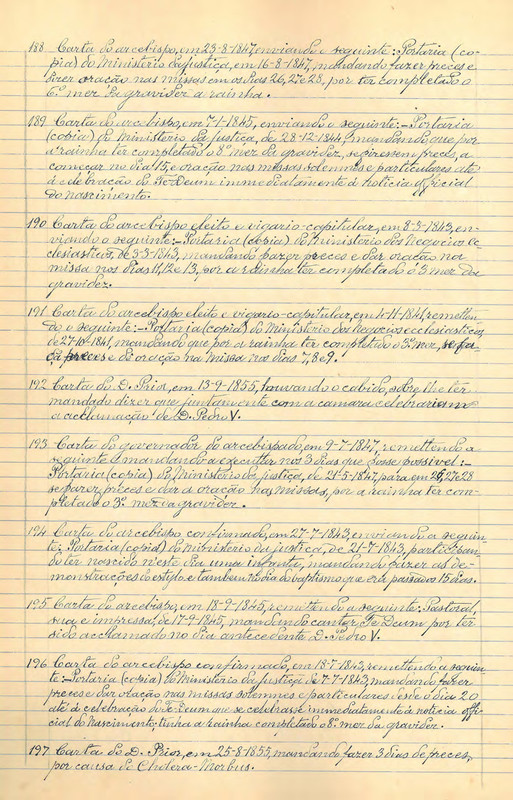 188 Carta do arcebispo, em 23-8-1847, enviando o seguinte: Portaria (co-
pia) do Ministerio da justiça, em 16-8-1847, mandando fazer preces e
dizer oração nas missas em os dias 26, 27 e 28, por ter completado o
6º mez da gravidez a rainha.
189 Carta do arcebispo, em 7-1-1845, enviando o seguinte:- Portaria
(copia) do Ministerio da justiça, de 28-12-1844, mandando que por
a rainha ter completado o 8º mez da gravidez, se fizessem preces, a
começar no dia 15, e oração nas missas solemnes e particulares até
á celebração do Te-Deum immediatamente á noticia official
do nascimento.
190 Carta do arcebispo eleito e vigario-capitular, em 8-3-1843, en-
viando o seguinte:- Portaria (copia) do Ministerio dos Negocios Ec-
clesiasticos, de 3-3-1843, mandando fazer preces e dar oração na
missa nos dias 11, 12 e 13, por a rainha ter completado o 3º mez da
gravidez.
191 Carta do arcebispo eleito e vigario-capitular, em 4-11-1841, remetten-
do o seguinte:- Portaria (copia) do Ministerio dos Negocios ecclesiasticos,
de 27-10-1841, mandando que por a rainha ter completado o 3º mez, se fa-
ça preces e dê oração na missa nos dias 7, 8 e 9.
192 Carta do D. Prior, em 13-9-1855, louvando o cabido, sobre lhe ter
mandado dizer que juntamente com a camara celebrariam
a acclamação de D. Pedro V.
193 Carta do governador do arcebispado, em 9-7-1847, remettendo a
seguinte e mandando a executar nos 3 dias que fosse possivel:-
Portaria (copia) do Ministerio da justiça, de 21-5-1847, para em 26, 27 e 28
se fazer preces e dar a oração nas missas, por a rainha ter com-
pletado o 3º mez da gravidez.
194 Carta do arcebispo confirmado, em 27-7-1843, enviando a seguin-
te: Portaria (copia) do Ministerio da justiça, de 21-7-1843, participan-
do ter nascido n'este dia uma infanta, mandando fazer as de-
monstrações do estylo e tambem no dia do baptismo que era passados 15 dias.
195 Carta do arcebispo, em 18-9-1845, remettendo a seguinte: Pastoral,
sua e impressa, de 17-9-1845, mandando cantar Te Deum por ter
sido acclamado no dia antecedente D. Pedro V.
196 Carta do arcebispo confirmado, em 18-7-1843, remettendo a seguin-
te:- Portaria (copia) do Ministerio da justiça de 7-7-1843, mandando fazer
preces e dar oração nas missas solemnes e particulares desde o dia 20
até á celebração do Te Deum que se celebrasse immediatamente á noticia offi-
cial do Nascimento: tinha a rainha completado o 8º mez da gravidez.
197 Carta do D. Prior, em 25-8-1855, mandando fazer 3 dias de preces,
por causa do Cholera-Morbus.